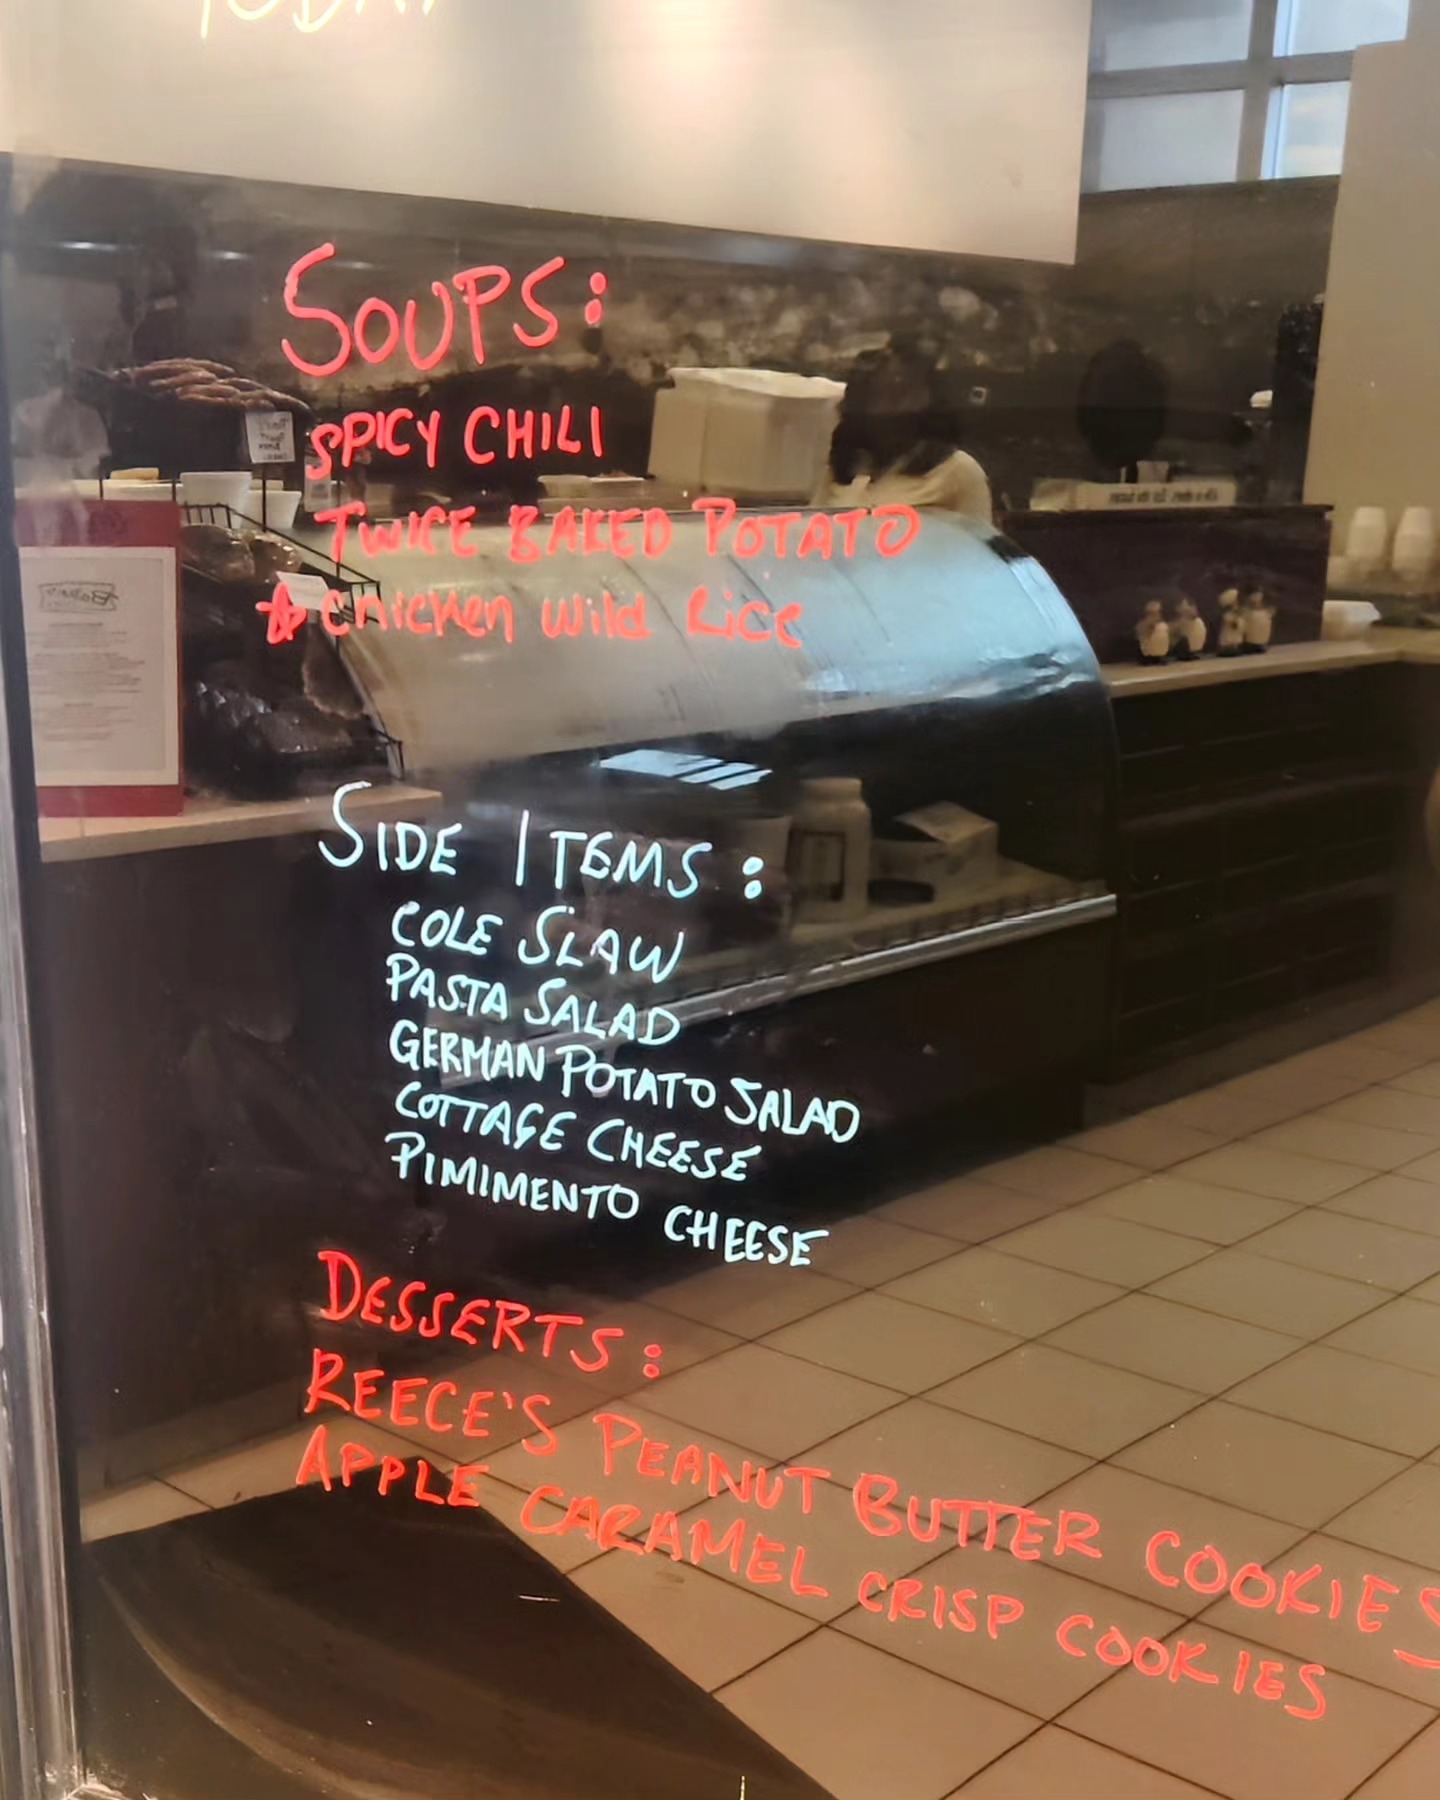 TODAY
SOUPS:
SPICY CHILI
TWICE BAKED POTATO
☆ chicken wild Rice
SIDE ITEMS:
COLE SLAW
PASTA SALAD
GERMAN POTATO SALAD
COTTAGE CHEESE
PIMIMENTO CHEESE
DESSERTS:
REECE'S PEANUT BUTTER COOKIES
APPLE CARAMEL CRISP COOKIES